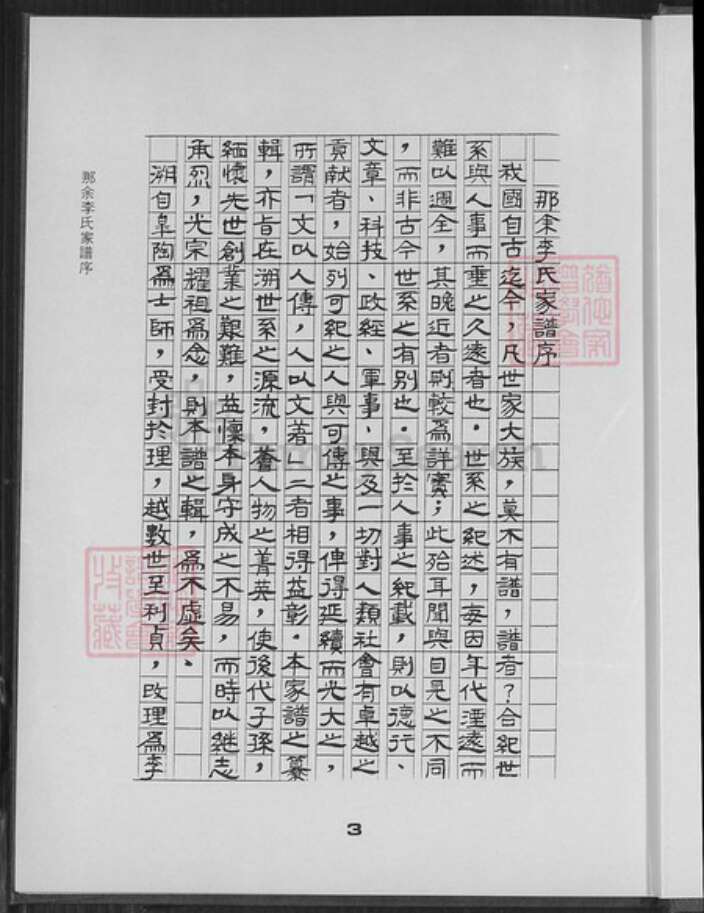 那余李氏家譜序
我國自古迄今，凡世家大族，莫不有譜，譜者？合紀世
系與人事而垂之久遠者也。世系之紀述，每因年代湮遠而
難以週全，其晚近者則較為詳實；此殆耳聞與目見之不同
，而非古今世系之有別也。至於人事之紀載，則以德行、
文章、科技、政經、軍事、與及一切對人類社會有卓越之
貢献者，始列可紀之人與可傳之事，俾得延續而光大之，
所謂「文以人傳，人以文著」二者相得益彰。本家譜之纂
輯，亦旨在溯世系之源流，薈人物之菁英，使後代子孫，
緬懷先世創業之艱難，益懷本身守成之不易，而時以継志
承烈，光宗耀祖為念，則本譜之輯，為不虛矣、
溯自皐陶為士師，受封於理，越數世至利貞，改理為李
那余李氏家譜序
3